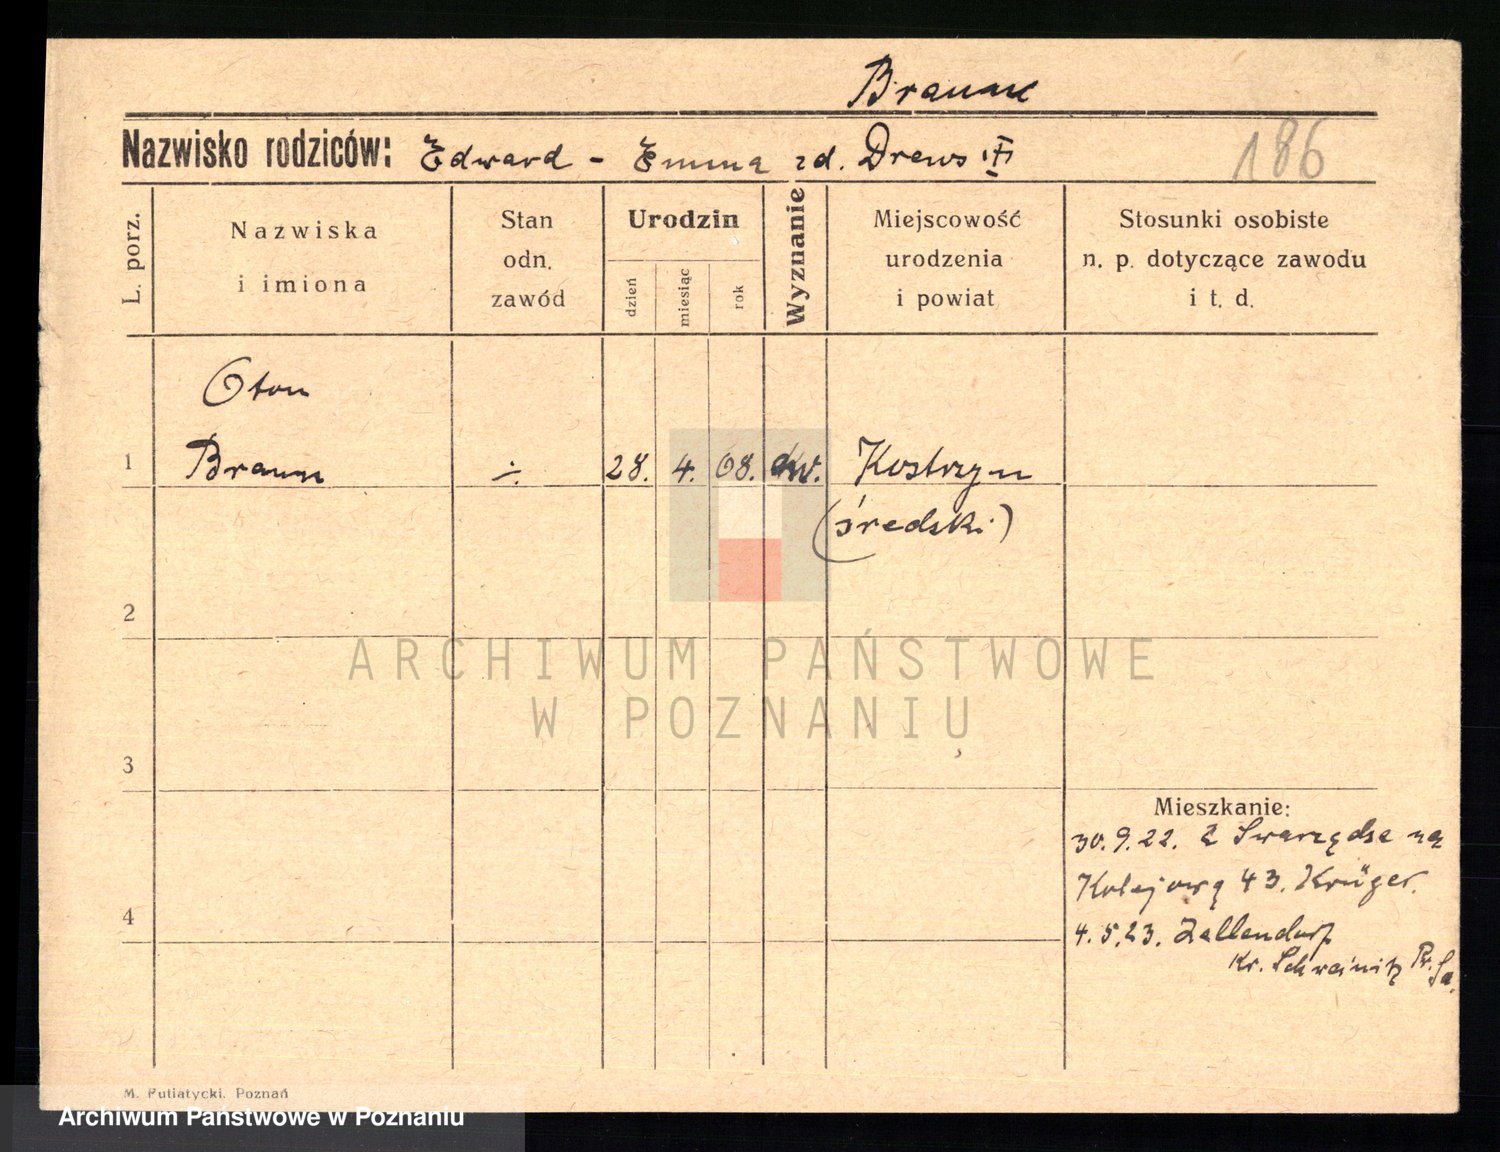 Braun
Nazwisko rodziców: Edward - Emma zd. Drews
186
L. porz.
Nazwiska
i imiona
Stan
odn.
zawód
Urodzin
dzień
miesiąc
rok
Wyznanie
Miejscowość
urodzenia
i powiat
Stosunki osobiste
n. p. dotyczące zawodu
i t. d.
Oton
1 Braun ÷ 28. 4. 08. ew. Kostrzyn
(średski)
2
3
Mieszkanie:
30.9.22. z Swarzędza na
Kolejową 43. Krüger.
4
4.5.23. Zallendorf
Kr. Schweinitz Pr. Sa.
ARCHIWUM PAŃSTWOWE
W POZNANIU
M. Putiatycki. Poznań
Archiwum Państwowe w Poznaniu